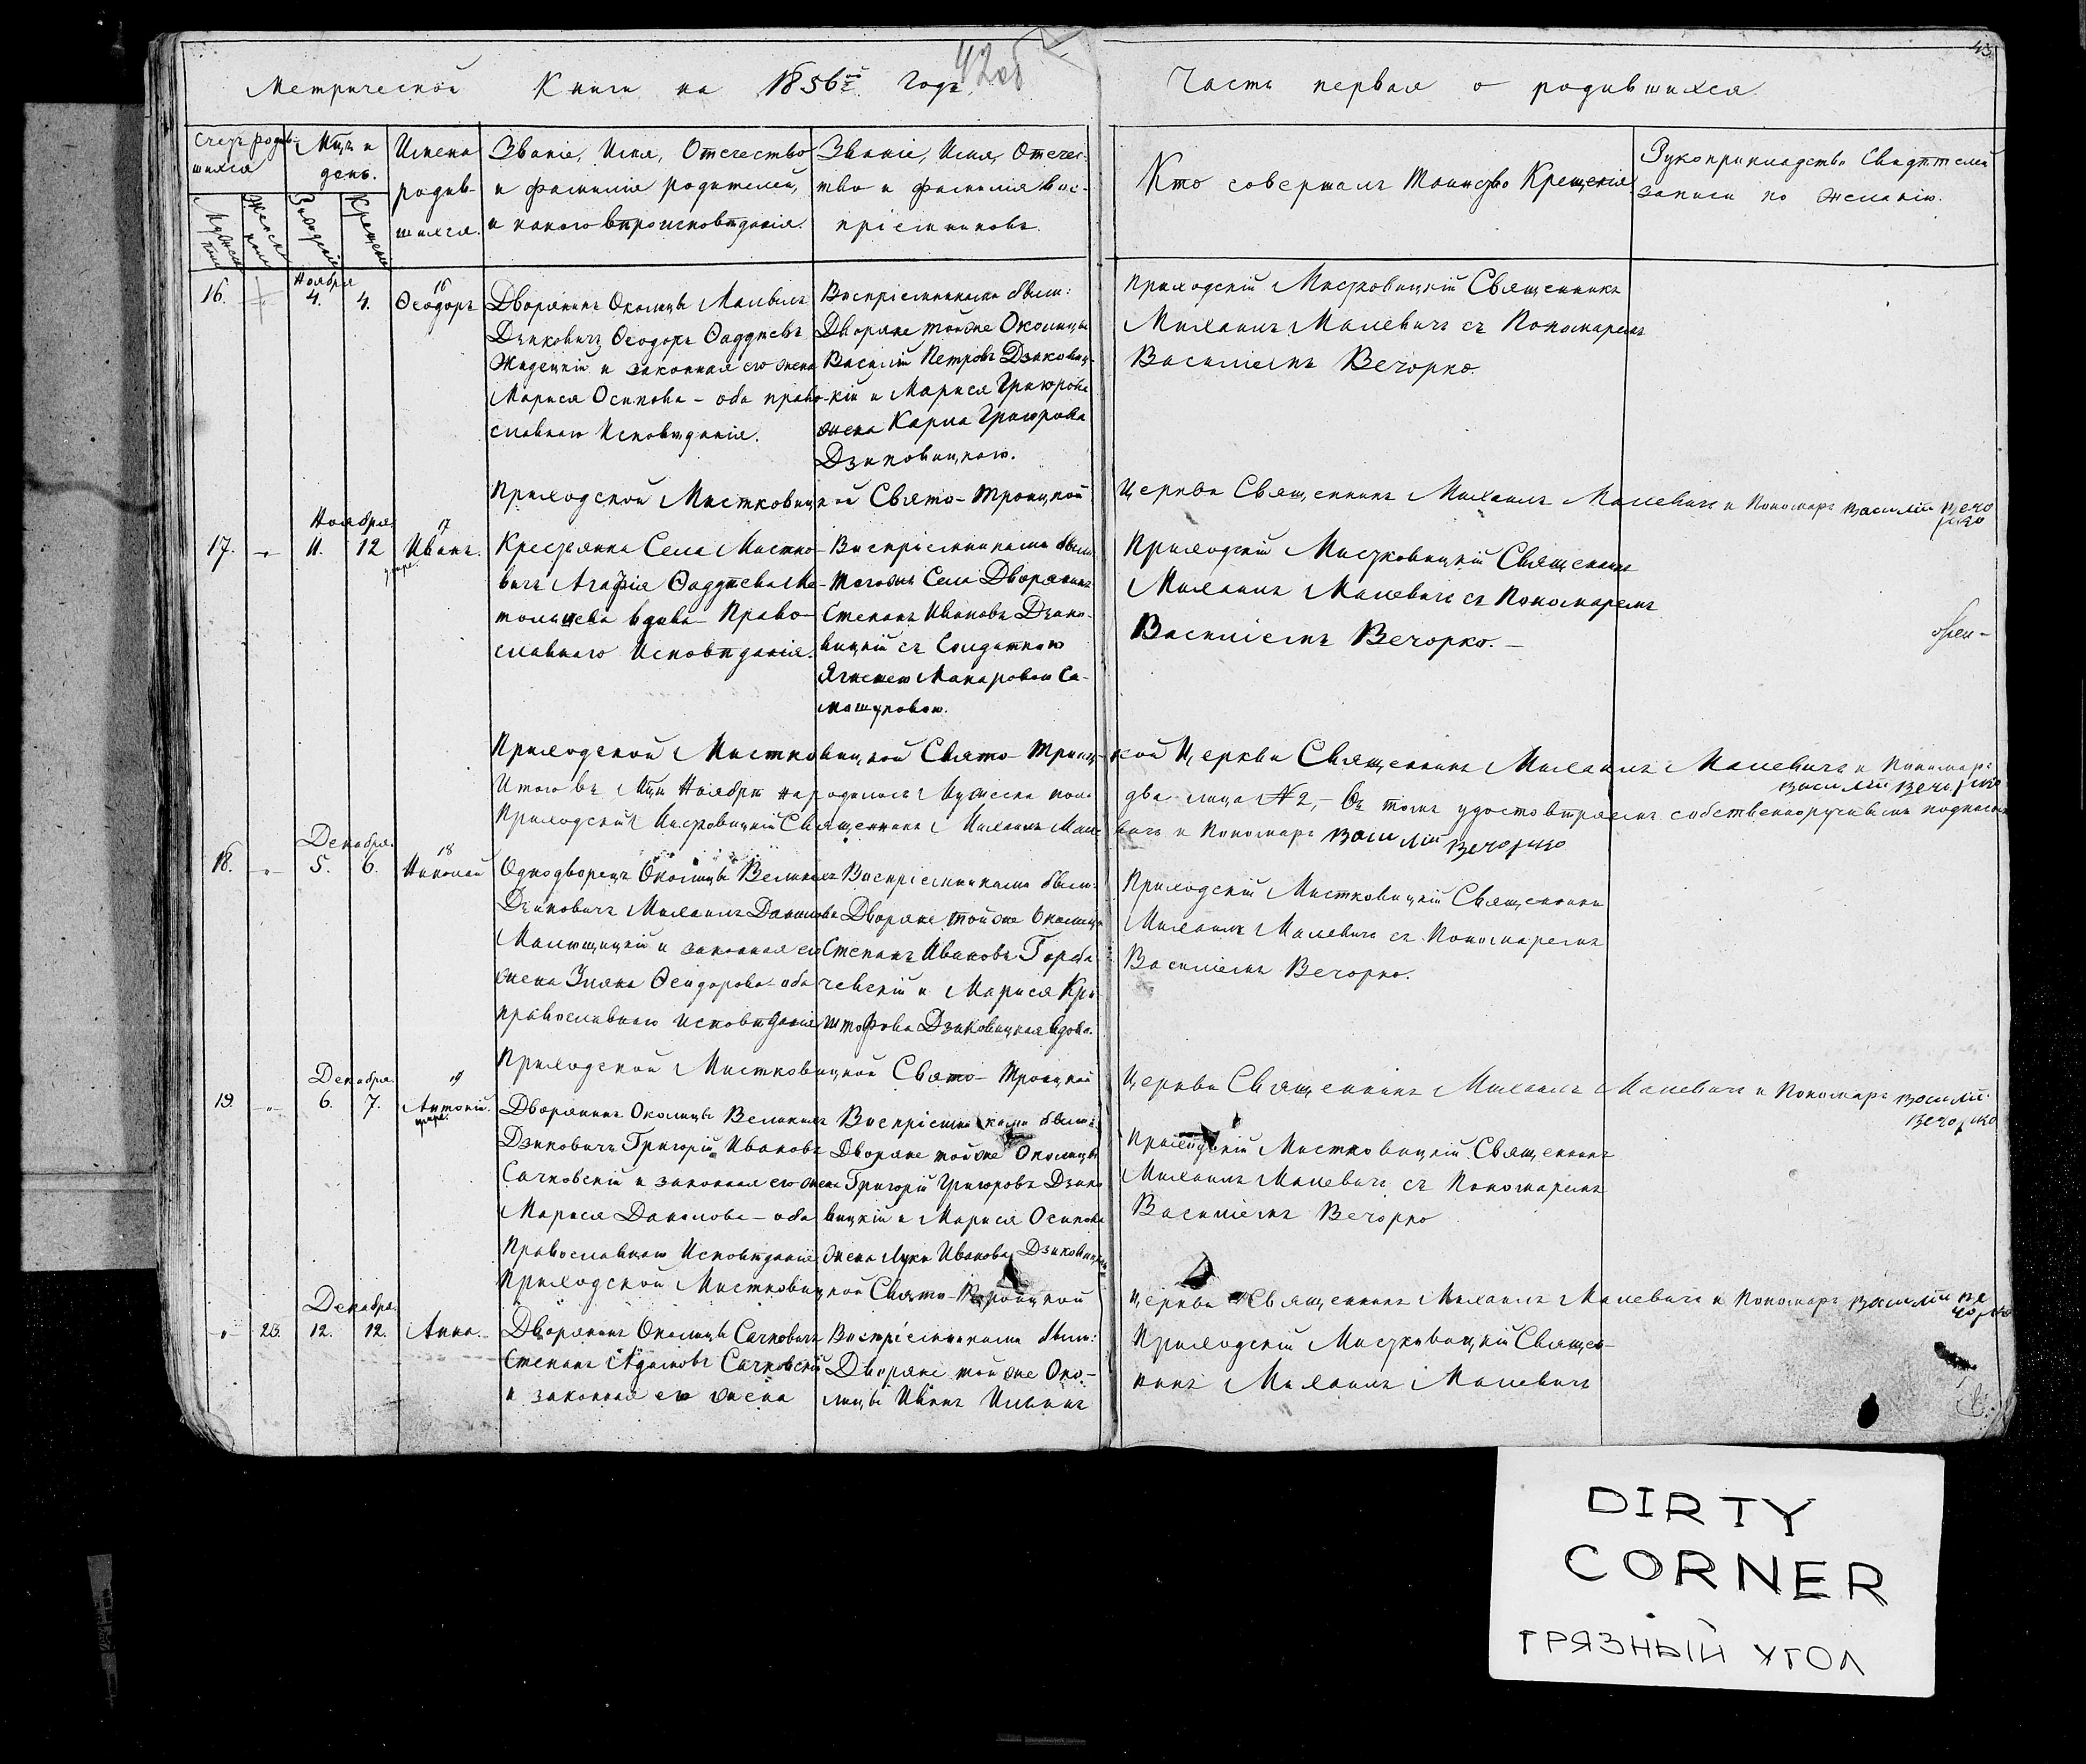 42об
43
Метрической Книги на 1856ой Годъ
Часть первая о родившихся.
Счетъ родив-
шихся
Мцъ и
день.
Имена
родив-
шихся.
Званіе, Имя, Отечество
и фамилія родителей,
и какого вѣроисповѣданія.
Званіе, Имя, Отечес-
тво и фамилія вос-
пріемниковъ.
Кто совершалъ таинство Крещенія
Рукоприкладство Свидѣтелей
записи по желанію.
Мужеска
пола
Женска
пола
Рожденія
Крещенія
16.
Ноября
4. 4.
16
Ѳеодоръ
Дворянинъ Околицы Малыхъ
Дзиковичъ Ѳеодоръ Ѳаддѣевъ
Жидецкій и законная его жена
Марися Осипова – оба право-
славнаго Исповѣданія.
Воспріемниками были:
Дворяне той же Околицы
Василій Петровъ Дзиковиц-
кій и Марися Григорова
жена Карпа Григорова
Дзиковицкаго.
Приходскій Мистковицкій Священникъ
Михаилъ Малевичъ съ Пономаремъ
Василіемъ Вечорко.
Приходской Мистковицкой Свято-Троицкой Церкви Священникъ Михаилъ Малевичъ и Пономарь Василій Вечо
рко
17. „
Ноября
11. 12
17
Иванъ.
умре.
Крестьянка Села Мистко-
вичъ Агафія Ѳаддѣева
вдова – Право-
славнаго Исповѣданія.
Воспріемниками были
тогожъ Села Дворянинъ
Степанъ Ивановъ Дзико-
вицкій съ Солдаткою
Макаровою Са-
Приходскій Мистковицкій Священникъ
Михаилъ Малевичъ съ Пономаремъ
Василіемъ Вечорко. –
Приходской Мистковицкой Свято-Троиц-кой Церкви Священникъ Михаилъ Малевичъ и Пономарь
Василій Вечорко
Итого въ Мцѣ Ноябрѣ народилось Мужеска пола два лица № 2, – Въ томъ удостовѣряемъ собственноручнымъ подписомъ
Приходскій Мистковицкій Священникъ Михаилъ Малевичъ и Пономарь Василій Вечорко
18. „
Декабря.
5. 6.
18
Николай
Однодворецъ Околицы Великихъ
Дзиковичъ Михаилъ Даниловъ
и законная его
жена Ѳеодорова – оба
православнаго исповѣданія
Воспріемниками были:
Дворяне той же Околицы
Степанъ Ивановъ Горба
чевскій и Марися Кри
штофова Дзиковицкая вдова.
Приходскій Мистковицкій Священникъ
Михаилъ Малевичъ съ Пономаремъ
Василіемъ Вечорко.
Приходской Мистковицкой Свято-Троицкой Церкви Священникъ Михаилъ Малевичъ и Пономарь Василій
Вечорко
19. „
Декабря.
6. 7.
19
Антоній.
умре.
Дворянинъ Околицы Великихъ
Дзиковичъ Григорій Ивановъ
Сачковскій и законная его жена
Марися Данилова – оба
Православнаго Исповѣданія
Воспріемниками были:
Дворяне той же Околицы
Григорій Григоровъ Дзико
вицкій и Марися Осипова
жена Луки Иванова Дзиковицкаго
Приходскій Мистковицкій Священникъ
Михаилъ Малевичъ съ Пономаремъ
Василіемъ Вечорко
Приходской Мистковицкой Свято-Троицкой Церкви Священникъ Михаилъ Малевичъ и Пономарь Василій Ве
чорко
„ 20.
Декабря.
12. 12.
Анна.
Дворянинъ Околицы Сачковичъ
Степанъ Адамовъ Сачковскій
и законная его жена
Воспріемниками были:
Дворяне той же Око-
лицы Иванъ Ильинъ
Приходскій Мистковицкій Священ-
никъ Михаилъ Малевичъ
DIRTY
CORNER
ГРЯЗНЫЙ УГОЛ